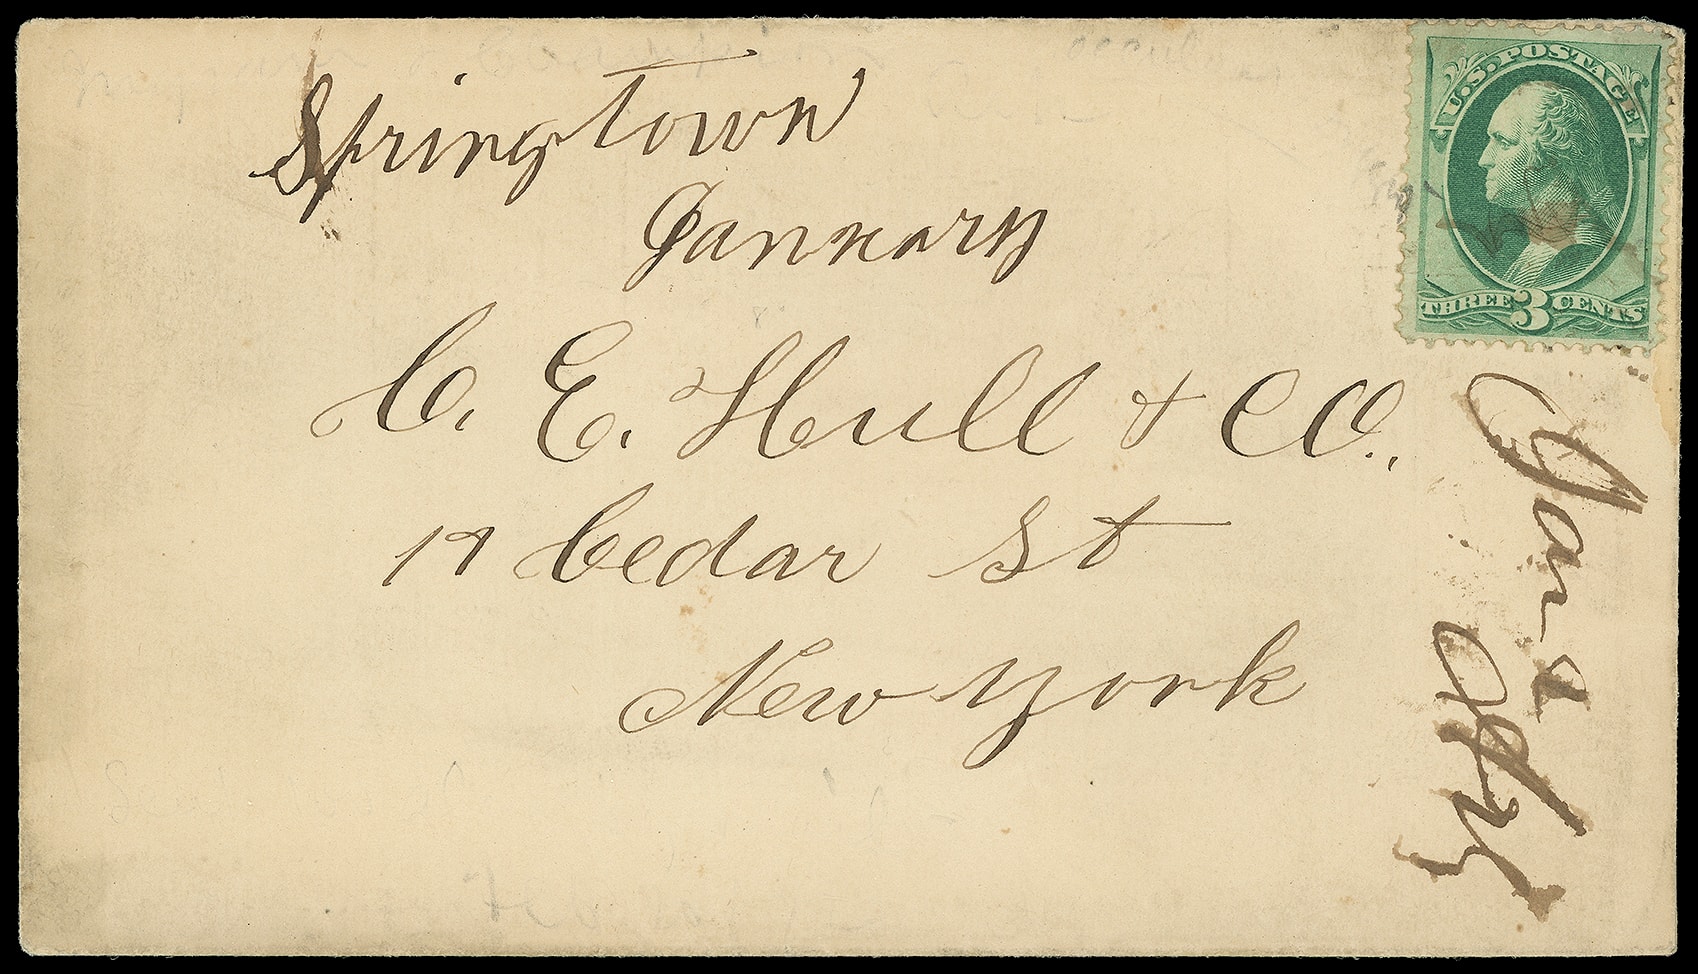 Springtown
January
U.S. POSTAGE
THREE 3 CENTS
C. E. Hull & CO.,
17 Cedar St
New York
Jan 2